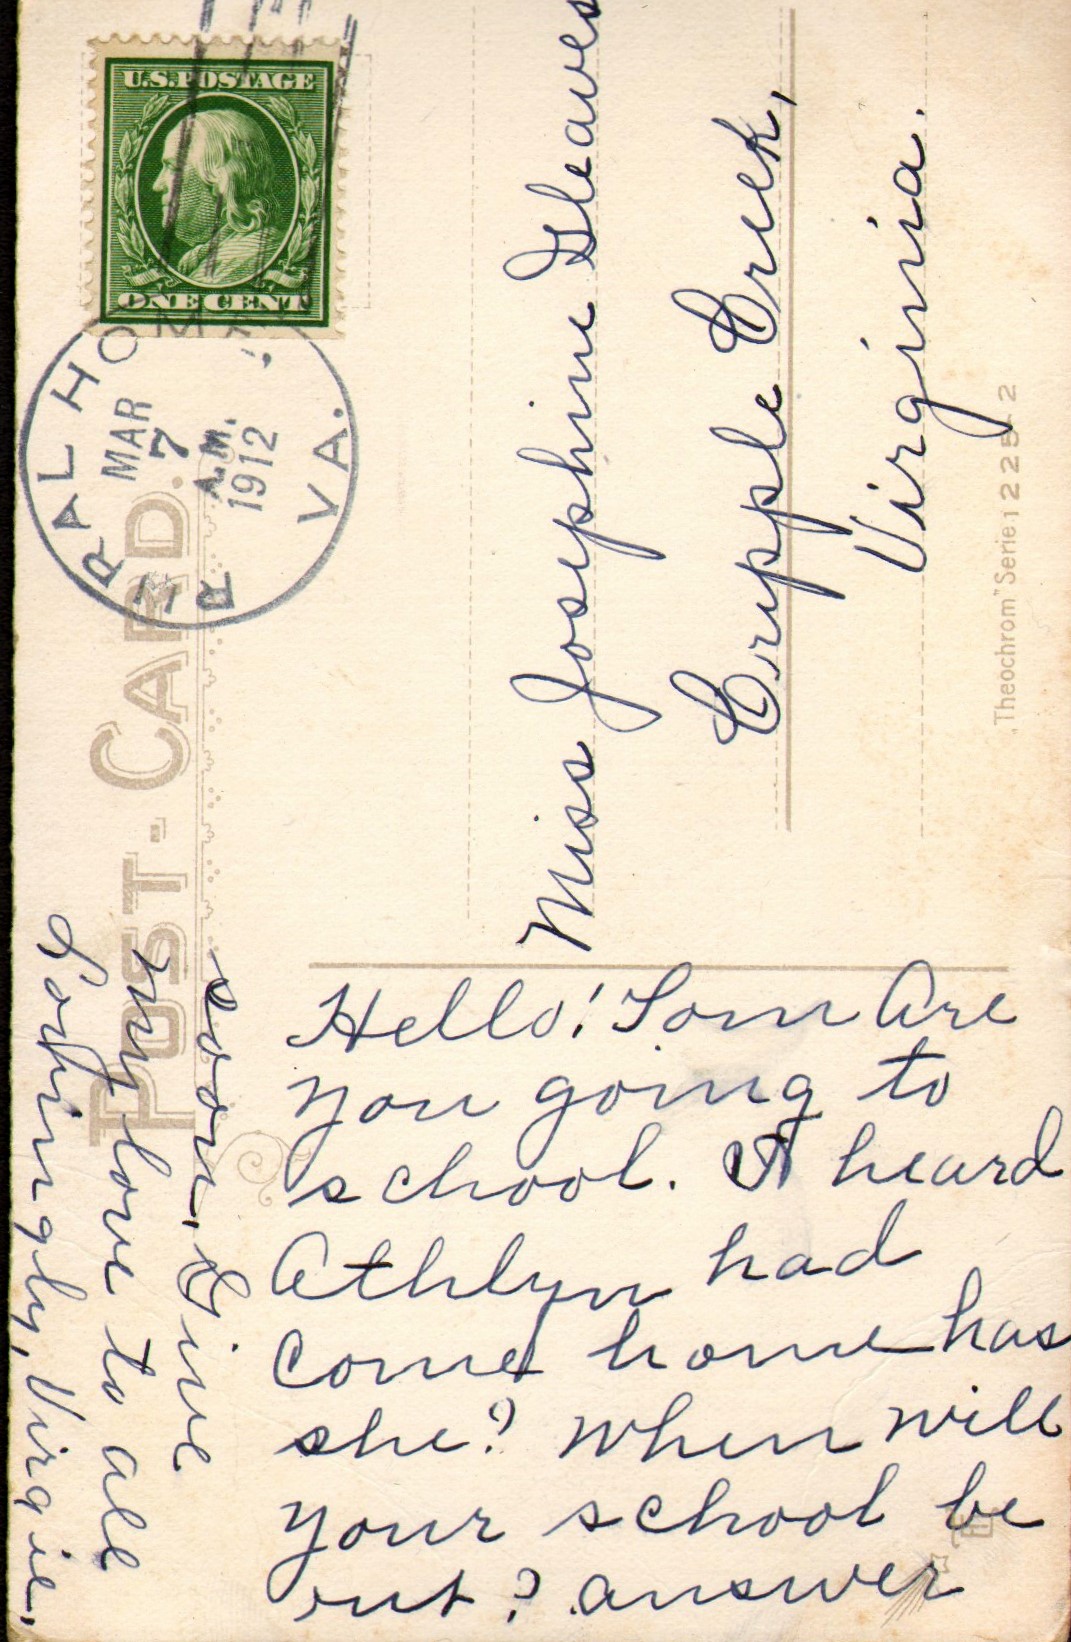 U.S.POSTAGE
ONE CENT
RURAL HO
MAR
7
A.M.
1912
VA.
POST-CARD.
Miss Josephine Gleaves
Cripple Creek,
Virginia.
„Theochrom" Serie 1225 2
Hello! Tom Are
you going to
school. I heard
Athlyn had
come home has
she? When will
your school be
out? answer
soon, Give
my love to all
Lovingly, Virgie.